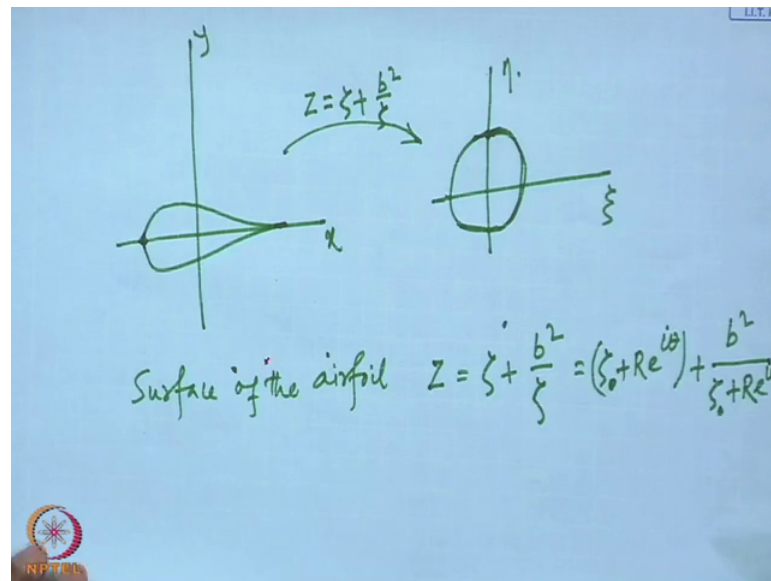 I.I.T.
y
η.
Z = ζ + b²/ζ
ξ
x
Surface of the airfoil Z = ζ + b²/ζ = (ζ₀ + Re^{iθ}) + b²/(ζ₀ + Re^{i
NPTEL